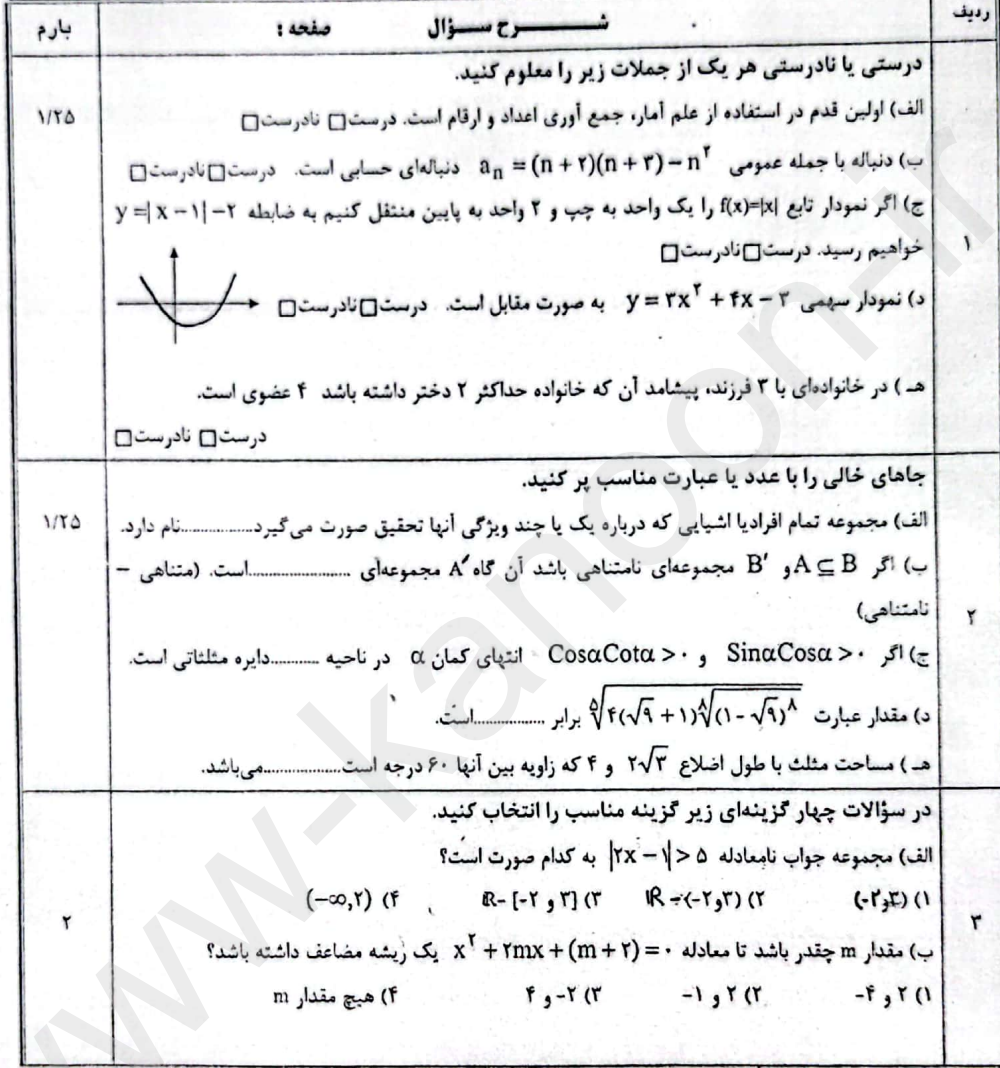 ردیف
شـــــــــرح ســـؤال
صفحه :
بارم
درستی یا نادرستی هر یک از جملات زیر را معلوم کنید.
الف) اولین قدم در استفاده از علم آمار، جمع آوری اعداد و ارقام است. درست□ نادرست□
۱/۲۵
ب) دنباله با جمله عمومی aₙ = (n + ۲)(n + ۳) − n² دنباله‌ای حسابی است. درست□نادرست□
ج) اگر نمودار تابع f(x)=|x| را یک واحد به چپ و ۲ واحد به پایین منتقل کنیم به ضابطه y =| x − ۱| −۲
۱
خواهیم رسید. درست□نادرست□
د) نمودار سهمی y = ۳x² + ۴x − ۳ به صورت مقابل است. درست□نادرست□
هـ ) در خانواده‌ای با ۳ فرزند، پیشامد آن که خانواده حداکثر ۲ دختر داشته باشد ۴ عضوی است.
درست□ نادرست□
جاهای خالی را با عدد یا عبارت مناسب پر کنید.
الف) مجموعه تمام افرادیا اشیایی که درباره یک یا چند ویژگی آنها تحقیق صورت می‌گیرد................نام دارد.
۱/۲۵
ب) اگر A ⊆ B و B′ مجموعه‌ای نامتناهی باشد آن گاه A′ مجموعه‌ای ....................است. (متناهی –
نامتناهی)
۲
ج) اگر SinαCosα > ۰ و CosαCotα > ۰ انتهای کمان α در ناحیه ...........دایره مثلثاتی است.
د) مقدار عبارت ⁵√(۴(√۹ + ۱) ⁸√((۱ - √۹)⁸)) برابر ................است.
هـ ) مساحت مثلث با طول اضلاع ۲√۳ و ۴ که زاویه بین آنها ۶۰ درجه است................می‌باشد.
در سؤالات چهار گزینه‌ای زیر گزینه مناسب را انتخاب کنید.
الف) مجموعه جواب نامعادله |۲x − ۱| > ۵ به کدام صورت است؟
۱) (۳و۲-) ۲) ℝ - (-۲و۳) ۳) ℝ- [-۲ و ۳] ۴) (−∞,۲)
۳
۲
ب) مقدار m چقدر باشد تا معادله x² + ۲mx + (m + ۲) = ۰ یک ریشه مضاعف داشته باشد؟
۱) ۲ و ۴- ۲) ۲ و ۱- ۳) ۲- و ۴ ۴) هیچ مقدار m
www-kanoon-ir